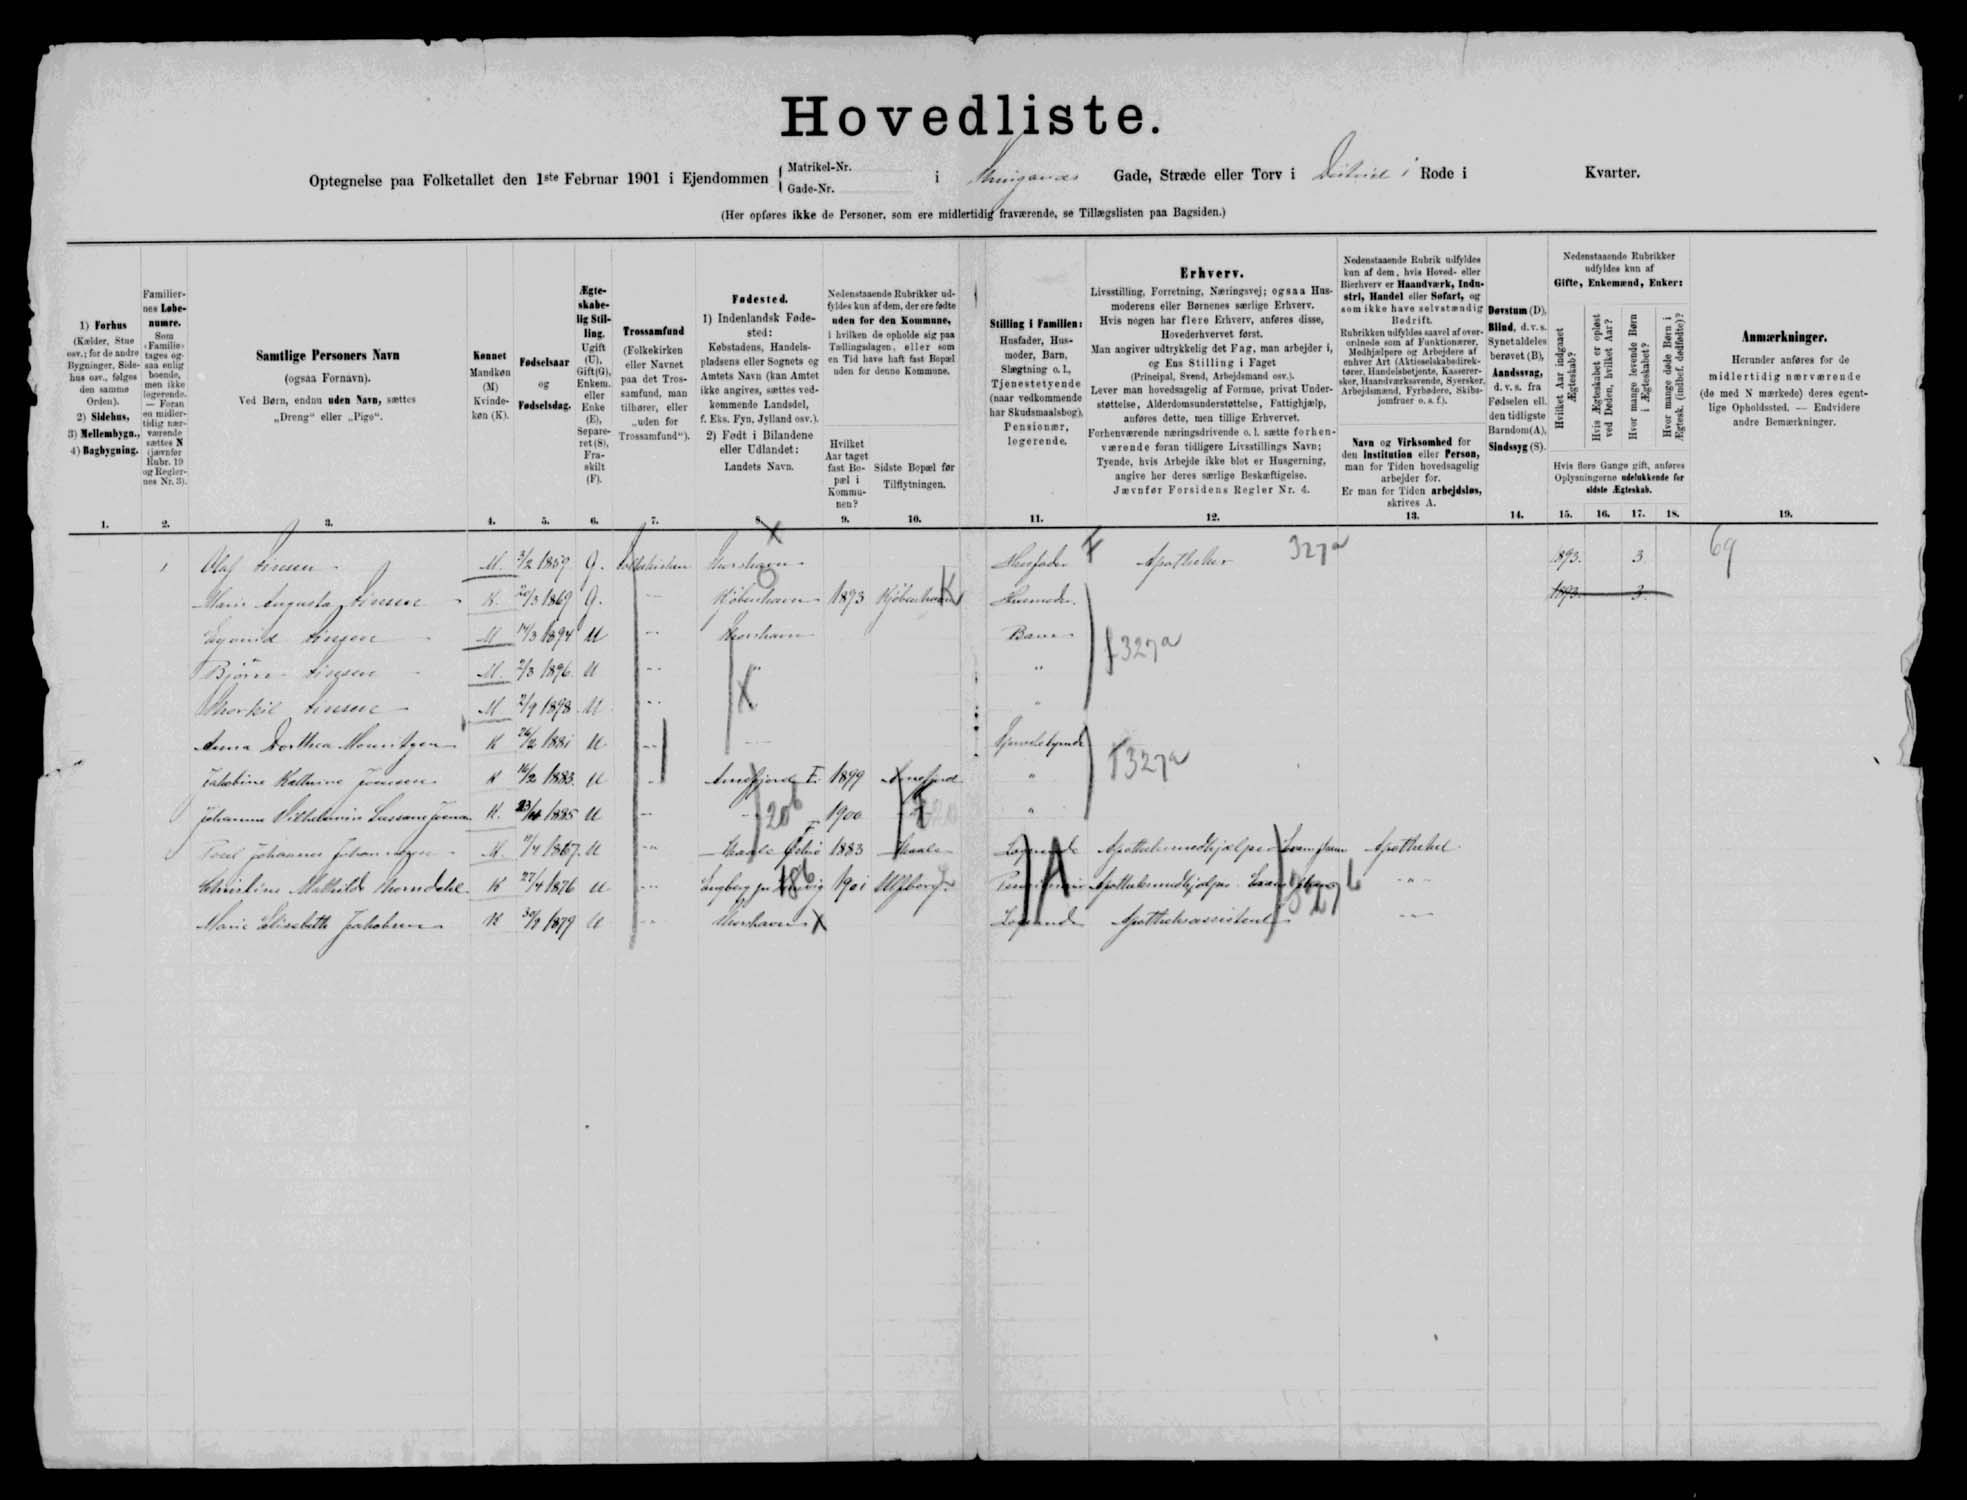 Hovedliste.
Optegnelse paa Folketallet den 1ste Februar 1901 i Ejendommen { Matrikel-Nr. Gade-Nr. i Gade, Stræde eller Torv i Rode i Kvarter.
(Her opføres ikke de Personer, som ere midlertidig fraværende, se Tillægslisten paa Bagsiden.)
1) Forhus
(Kælder, Stue
osv.; for de andre
Bygninger, Side-
hus osv., følges
den samme
Orden).
2) Sidehus,
3) Mellembygn.,
4) Bagbygning.
Familier-
nes Løbe-
numre.
Som
»Familie«
tages og-
saa enlig
boende,
men ikke
logerende.
— Foran
en midler-
tidig nær-
værende
sættes N
(jævnfør
Rubr. 19
og Regler-
nes Nr. 3).
Samtlige Personers Navn
(ogsaa Fornavn).
Ved Børn, endnu uden Navn, sættes
„Dreng“ eller „Pige“.
Kønnet
Mandkøn
(M)
Kvinde-
køn (K).
Fødselsaar
og
Fødselsdag.
Ægte-
skabe-
lig Stil-
ling.
Ugift
(U),
Gift(G),
Enkem.
eller
Enke
(E),
Separe-
ret (S),
Fra-
skilt
(F).
Trossamfund
(Folkekirken
eller Navnet
paa det Tros-
samfund, man
tilhører, eller
„uden for
Trossamfund“).
Fødested.
1) Indenlandsk Føde-
sted:
Købstadens, Handels-
pladsens eller Sognets og
Amtets Navn (kan Amtet
ikke angives, sættes ved-
kommende Landsdel,
f. Eks. Fyn, Jylland osv.).
2) Født i Bilandene
eller Udlandet:
Landets Navn.
Nedenstaaende Rubrikker ud-
fyldes kun af dem, der ere fødte
uden for den Kommune,
i hvilken de opholde sig paa
Tællingsdagen, eller som
en Tid have haft fast Bopæl
uden for denne Kommune.
Hvilket
Aar taget
fast Bo-
pæl i
Kommu-
nen?
Sidste Bopæl før
Tilflytningen.
Stilling i Familien:
Husfader, Hus-
moder, Barn,
Slægtning o. l.,
Tjenestetyende
(naar vedkommende
har Skudsmaalsbog),
Pensionær,
logerende.
Erhverv.
Livsstilling, Forretning, Næringsvej; ogsaa Hus-
moderens eller Børnenes særlige Erhverv.
Hvis nogen har flere Erhverv, anføres disse,
Hovederhvervet først.
Man angiver udtrykkelig det Fag, man arbejder i,
og Ens Stilling i Faget
(Principal, Svend, Arbejdsmand osv.).
Lever man hovedsagelig af Formue, privat Under-
støttelse, Alderdomsunderstøttelse, Fattighjælp,
anføres dette, men tillige Erhvervet.
Forhenværende næringsdrivende o. l. sætte forhen-
værende foran tidligere Livsstillings Navn;
Tyende, hvis Arbejde ikke blot er Husgerning,
angive her deres særlige Beskæftigelse.
Jævnfør Forsidens Regler Nr. 4.
Nedenstaaende Rubrik udfyldes
kun af dem, hvis Hoved- eller
Bierhverv er Haandværk, Indu-
stri, Handel eller Søfart, og
som ikke have selvstændig
Bedrift.
Rubrikken udfyldes saavel af over-
ordnede som af Funktionærer,
Medhjælpere og Arbejdere af
enhver Art (Aktieselskabsdirek-
tører, Handelsbetjente, Kasserer-
sker, Haandværkssvende, Syersker,
Arbejdsmænd, Fyrbødere, Skibs-
jomfruer o. s. f.).
Navn og Virksomhed for
den Institution eller Person,
man for Tiden hovedsagelig
arbejder for.
Er man for Tiden arbejdsløs,
skrives A.
Døvstum (D),
Blind, d. v. s.
Synet aldeles
berøvet (B),
Aandssvag,
d. v. s. fra
Fødselen ell.
den tidligste
Barndom(A),
Sindssyg (S).
Nedenstaaende Rubrikker
udfyldes kun af
Gifte, Enkemænd, Enker:
Hvilket Aar indgaaet Ægteskab?
Hvis Ægteskabet er opløst ved Døden, hvilket Aar?
Hvor mange levende Børn i Ægteskabet?
Hvor mange døde Børn i Ægtesk. (indbef. dødfødte)?
Hvis flere Gange gift, anføres
Oplysningerne udelukkende for
sidste Ægteskab.
Anmærkninger.
Herunder anføres for de
midlertidig nærværende
(de med N mærkede) deres egent-
lige Opholdssted. — Endvidere
andre Bemærkninger.
1. 2. 3. 4. 5. 6. 7. 8. 9. 10. 11. 12. 13. 14. 15. 16. 17. 18. 19.
1 Olaf M. 3/2 1859 G. Folkekirken Thorshavn Husfader Apotheker 327a 1893. 3. 69
Marie Augusta K. 20/3 1869 G. Kjøbenhavn 1893 Kjøbenhavn Husmoder 1893. 3.
M 14/3 1894 U Thorshavn Barn 327a
Bjørn M. 2/3 1896 U "
Thorkil M 2/9 1898 U "
Anna Dorthea Mouritzen K 26/2 1881 U Tjenestetyende 327a
Jakobine Kathrine Joensen K 16/2 1883 U 1899 "
Johanne Vilhelmine Susanne Joensen K. 1885 U 20b 1900 "
Poul Johannes Johannesen M. 11/4 1867 U 1883 Logerende Apothekermedhjælper Apotheket
Christine Mathilde K 27/4 1876 U 18b 1901 Apothekermedhjælper 327b
Marie Elisabeth Jakobsen K 30/9 1879 U Thorshavn Logerende Apothekerassistent